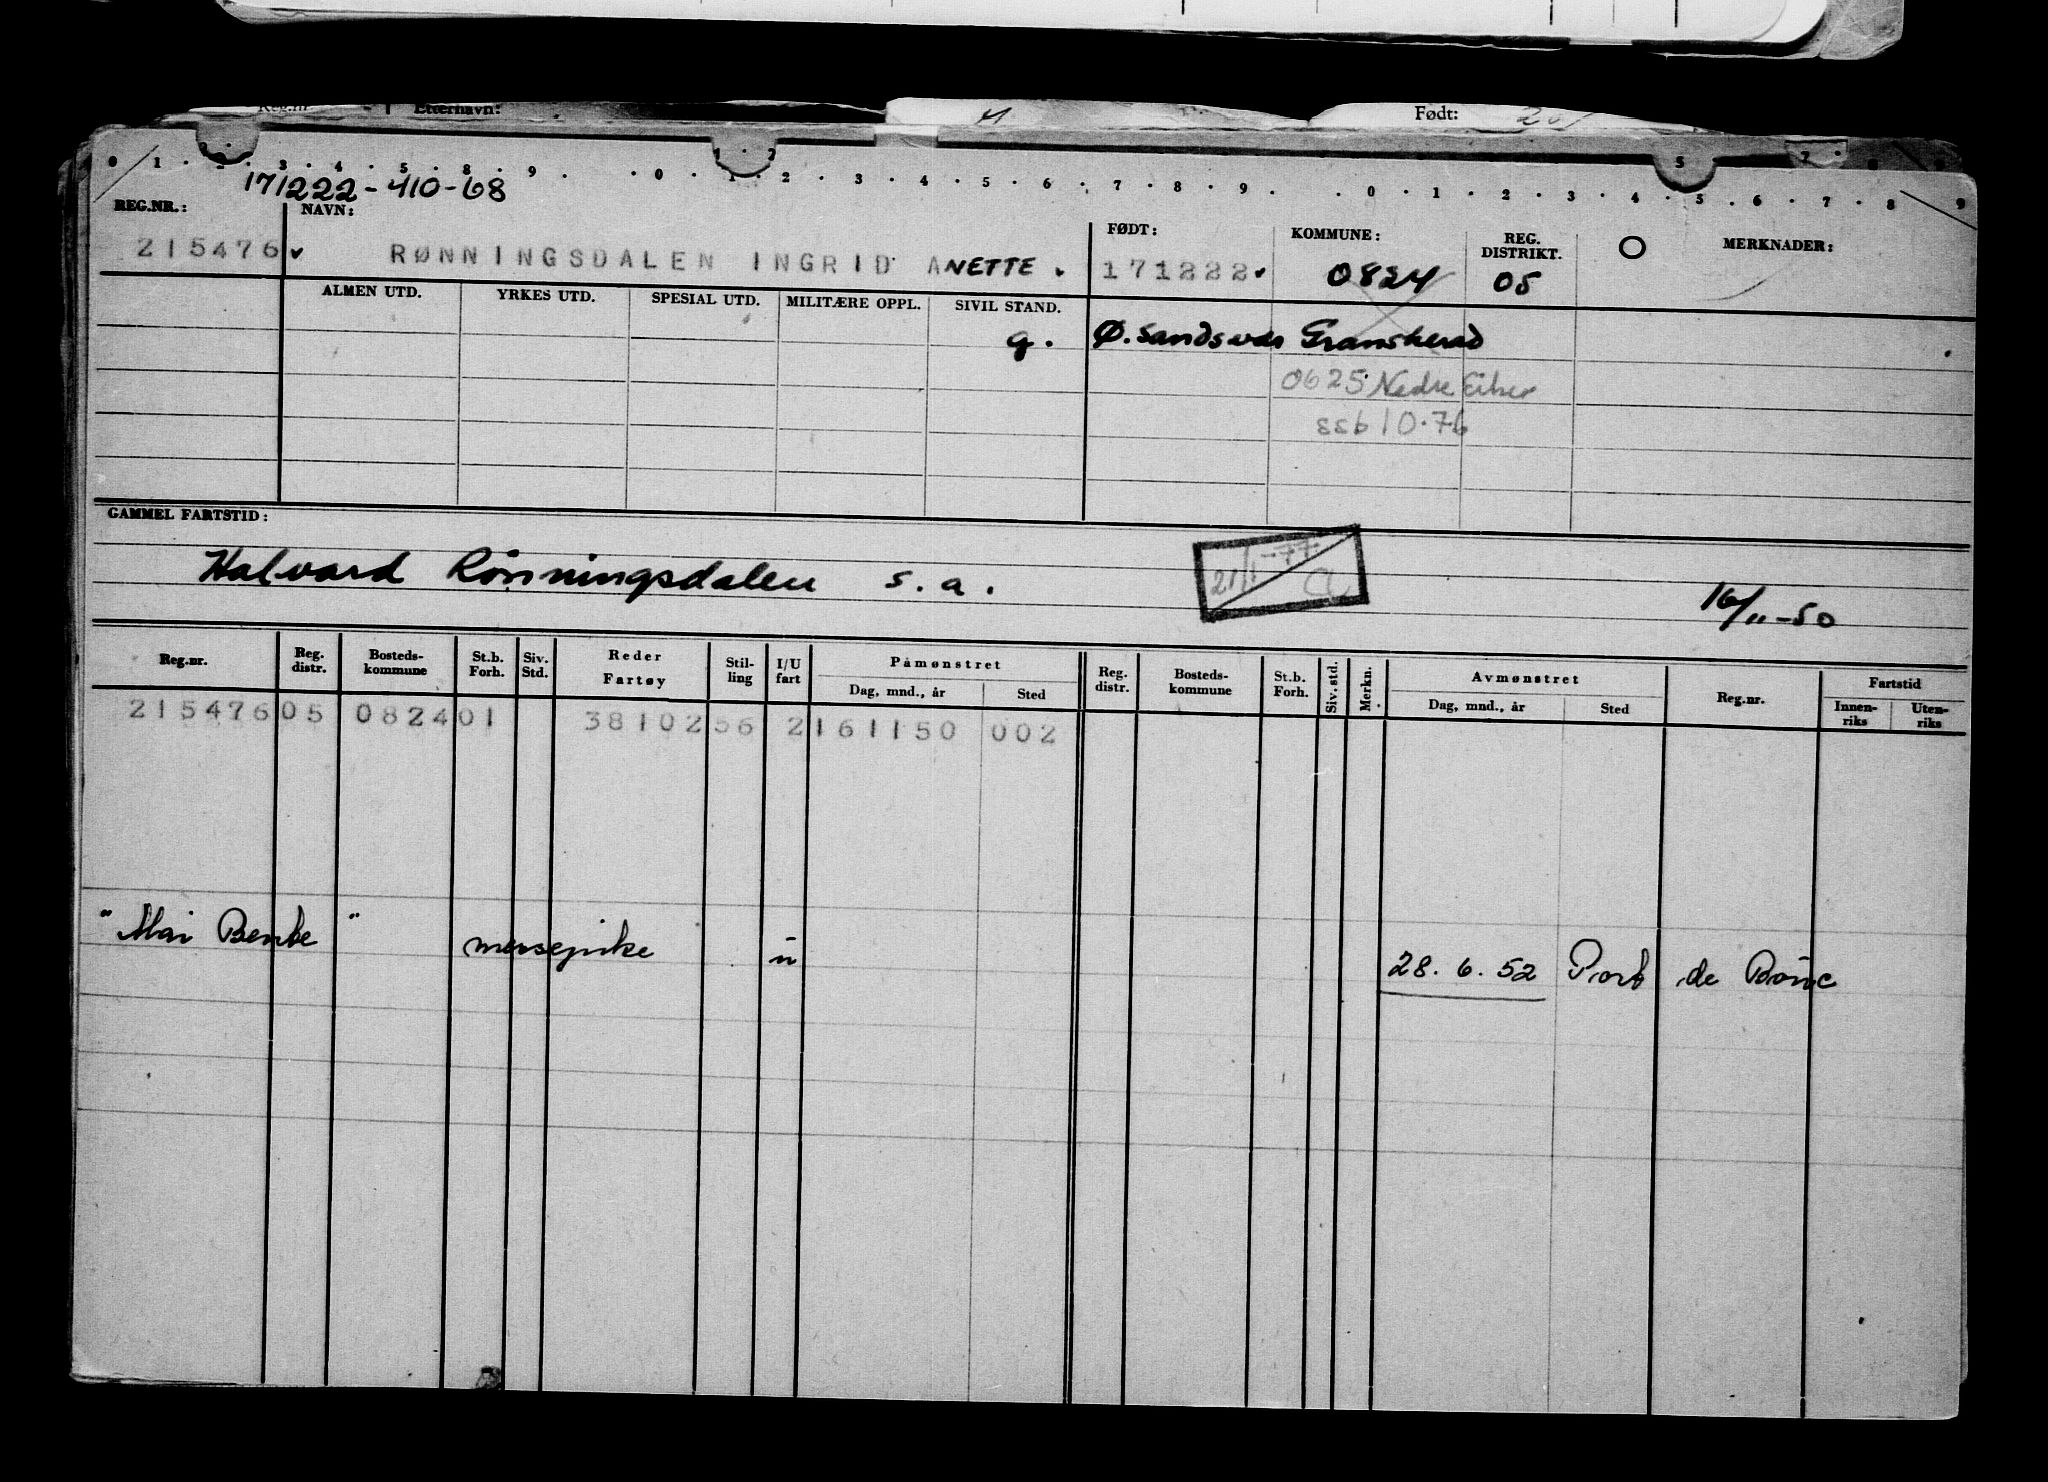 Reg.nr. Etternavn: Født:
0 1 2 3 4 5 8 9 0 1 2 3 4 5 6 7 8 9 0 1 2 3 4 5 6 7 8 9
171222-410-68
REG.NR.: NAVN: FØDT: KOMMUNE: REG. DISTRIKT. O MERKNADER:
215476 RØNNINGSDALEN INGRID ANETTE. 171222 0824 05
ALMEN UTD. YRKES UTD. SPESIAL UTD. MILITÆRE OPPL. SIVIL STAND.
g. Ø. Sandsvær Gransherad
0625 Nedre Eiker
ssb 10.76
GAMMEL FARTSTID:
Halvard Rønningsdalen s.a. 21/1-77 CL 16/11-50
Reg.nr. Reg. distr. Bosteds-kommune St.b. Forh. Siv. Std. Reder Fartøy Stil-ling I/U fart Påmønstret Dag, mnd., år Sted Reg. distr. Bosteds-kommune St.b. Forh. Siv. std. Merkn. Avmønstret Dag, mnd., år Sted Reg.nr. Fartstid Innen-riks Uten-riks
215476 05 0824 01 38102 56 2 161150 002
"Mai Bente" messepike u 28.6.52 Port de Bouc